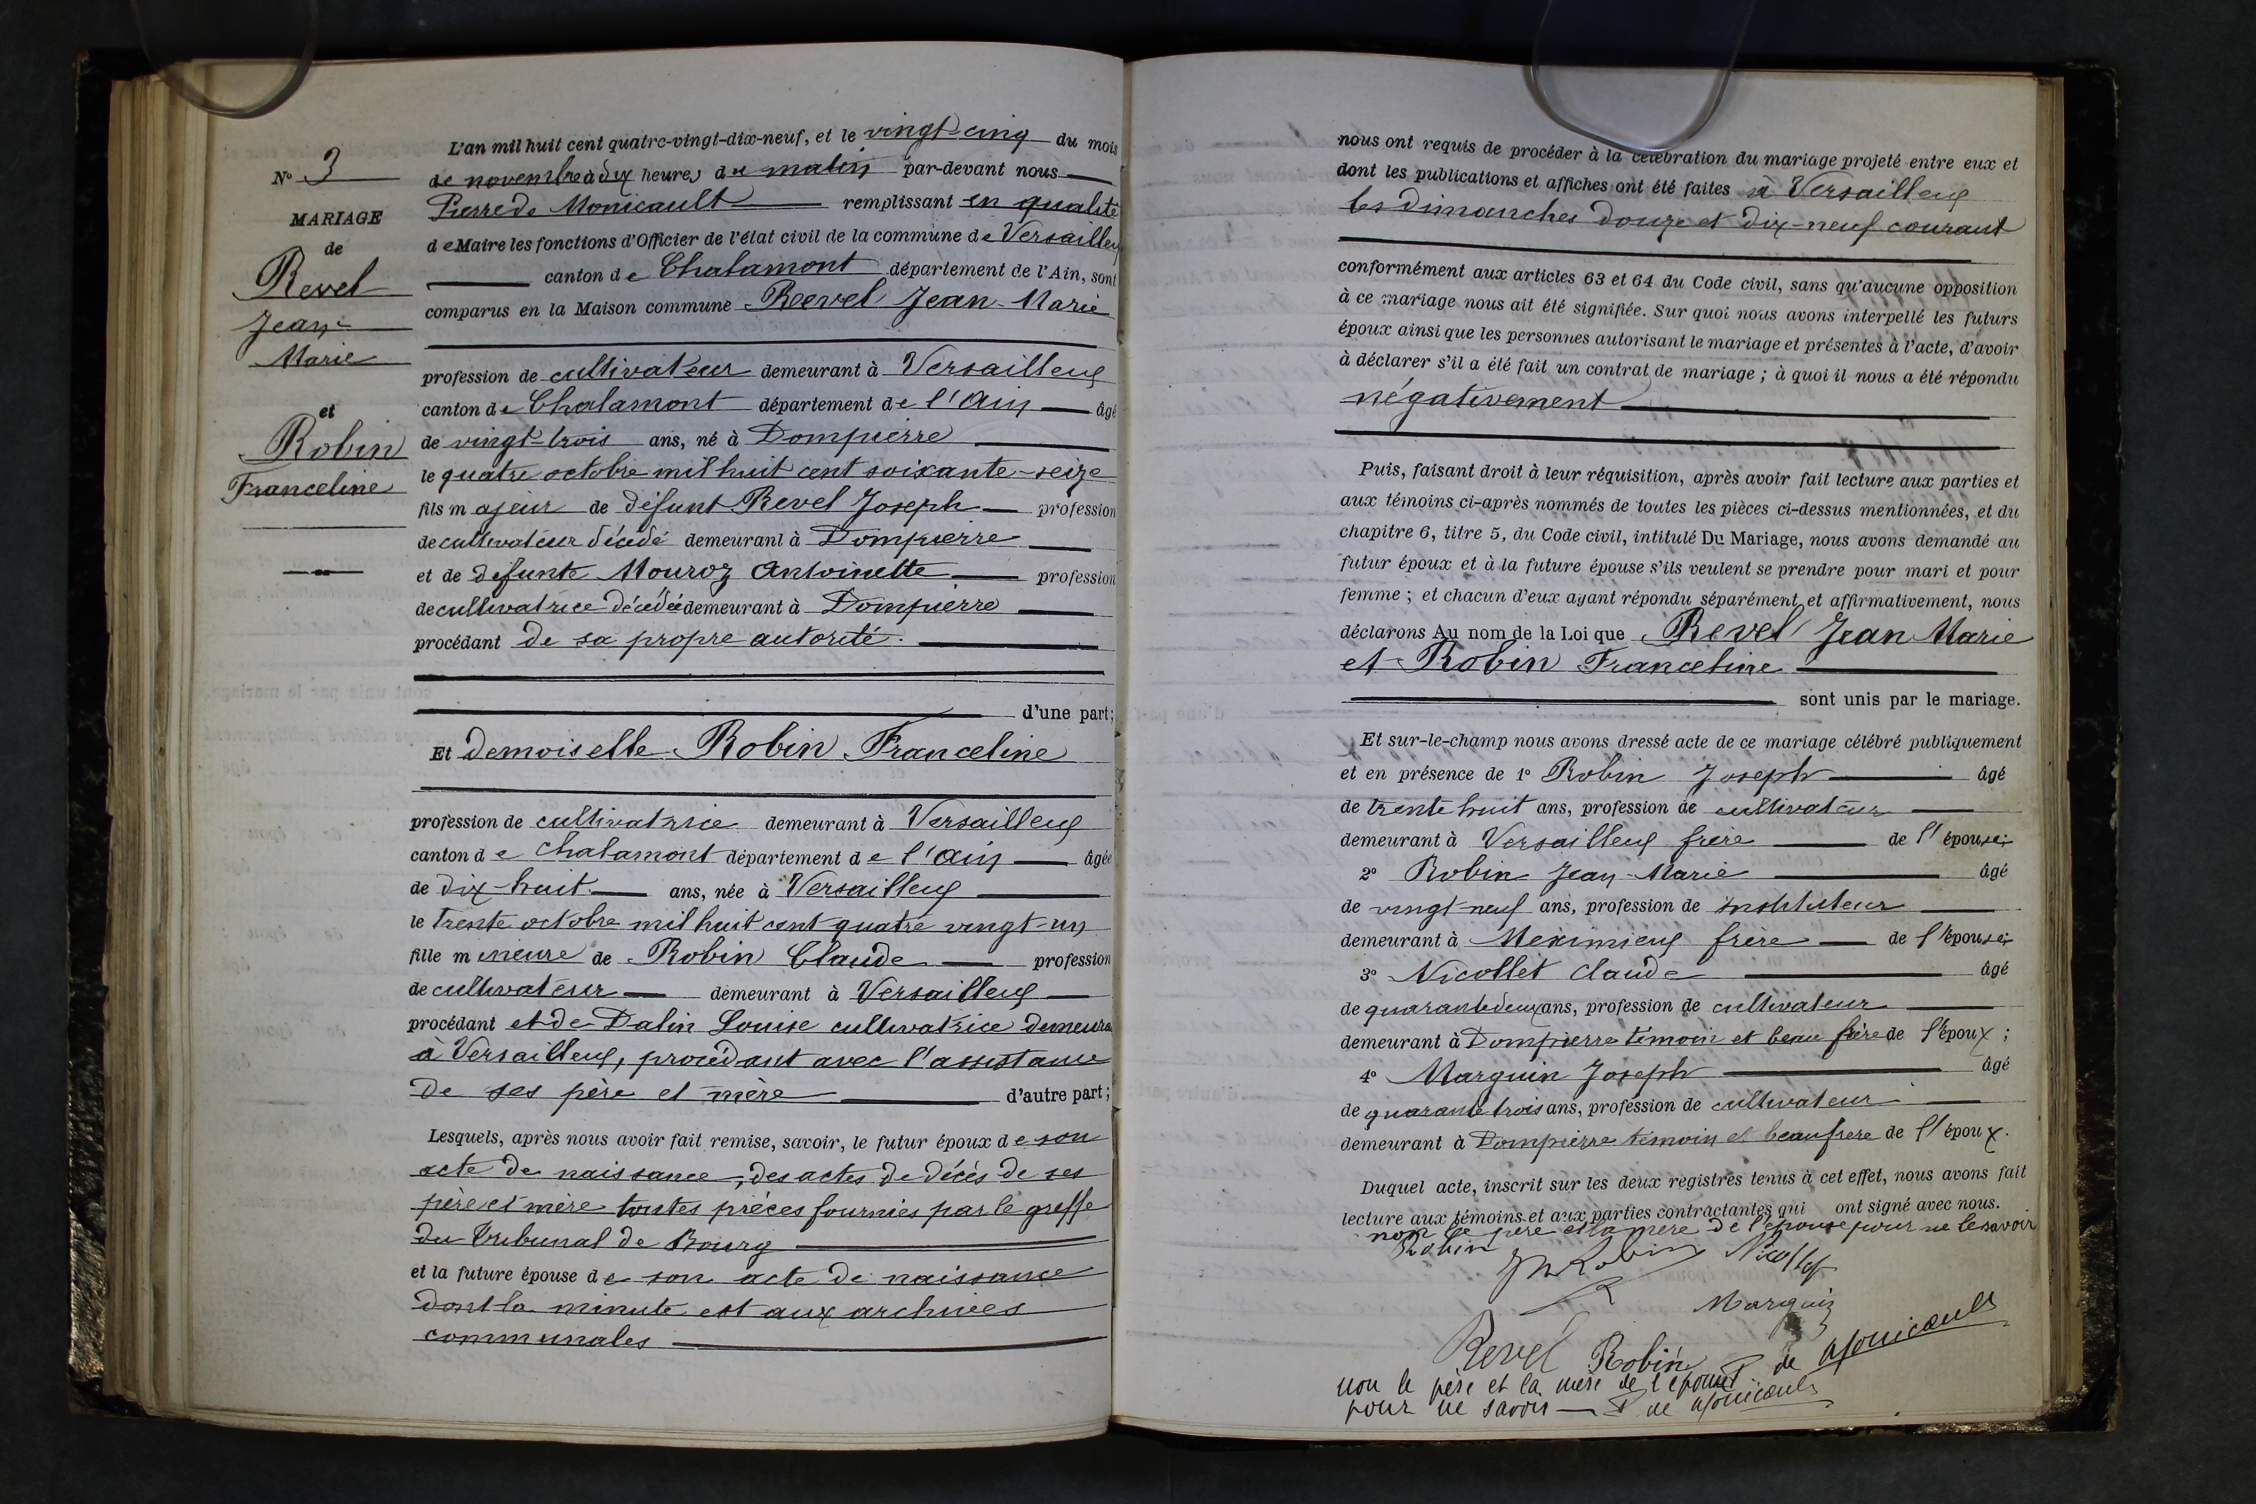 N° 3
MARIAGE
de
Revel
Jean-
Marie
et
Robin
Franceline
L'an mil huit cent quatre-vingt-dix-neuf, et le vingt-cinq du mois
de novembre à dix heures du matin par-devant nous
Pierre de Monicault remplissant en qualité
de Maire les fonctions d'Officier de l'état civil de la commune de Versailleux
canton de Chalamont département de l'Ain, sont
comparus en la Maison commune Revel Jean-Marie
profession de cultivateur demeurant à Versailleux
canton de Chalamont département de l'Ain âgé
de vingt-trois ans, né à Dompierre
le quatre octobre mil huit cent soixante-seize
fils majeur de défunt Revel Joseph profession
de cultivateur décédé demeurant à Dompierre
et de défunte Mouroz Antoinette profession
de cultivatrice décédée demeurant à Dompierre
procédant de sa propre autorité.
d'une part;
Et demoiselle Robin Franceline
profession de cultivatrice demeurant à Versailleux
canton de Chalamont département de l'Ain âgée
de dix-huit ans, née à Versailleux
le trente octobre mil huit cent quatre vingt-un
fille mineure de Robin Claude profession
de cultivateur demeurant à Versailleux
procédant et de Dalin Louise cultivatrice demeura
à Versailleux, procédant avec l'assistance
de ses père et mère d'autre part;
Lesquels, après nous avoir fait remise, savoir, le futur époux de son
acte de naissance, des actes de décès de ses
père et mère toutes pièces fournies par le greffe
du Tribunal de Bourg
et la future épouse de son acte de naissance
dont la minute est aux archives
communales
nous ont requis de procéder à la célébration du mariage projeté entre eux et
dont les publications et affiches ont été faites à Versailleux
les dimanches douze et dix-neuf courant
conformément aux articles 63 et 64 du Code civil, sans qu'aucune opposition
à ce mariage nous ait été signifiée. Sur quoi nous avons interpellé les futurs
époux ainsi que les personnes autorisant le mariage et présentes à l'acte, d'avoir
à déclarer s'il a été fait un contrat de mariage ; à quoi il nous a été répondu
négativement
Puis, faisant droit à leur réquisition, après avoir fait lecture aux parties et
aux témoins ci-après nommés de toutes les pièces ci-dessus mentionnées, et du
chapitre 6, titre 5, du Code civil, intitulé Du Mariage, nous avons demandé au
futur époux et à la future épouse s'ils veulent se prendre pour mari et pour
femme ; et chacun d'eux ayant répondu séparément et affirmativement, nous
déclarons Au nom de la Loi que Revel Jean Marie
et Robin Franceline
sont unis par le mariage.
Et sur-le-champ nous avons dressé acte de ce mariage célébré publiquement
et en présence de 1° Robin Joseph âgé
de trente huit ans, profession de cultivateur
demeurant à Versailleux frère de l'épouse;
2° Robin Jean-Marie âgé
de vingt-neuf ans, profession de instituteur
demeurant à Meximieux frère de l'épouse;
3° Nicollet Claude âgé
de quarante deux ans, profession de cultivateur
demeurant à Dompierre témoin et beau frère de l'époux ;
4° Marguin Joseph âgé
de quarante trois ans, profession de cultivateur
demeurant à Dompierre témoin et beaufrere de l'époux.
Duquel acte, inscrit sur les deux registres tenus à cet effet, nous avons fait
lecture aux témoins et aux parties contractantes qui ont signé avec nous.
non le père et la mère de l'épouse pour ne le savoir
Robin Jn Robin Nicollet
Marguin
Revel Robin P de Monicault
non le père et la mère de l'épouse
pour ne savoir P de Monicault